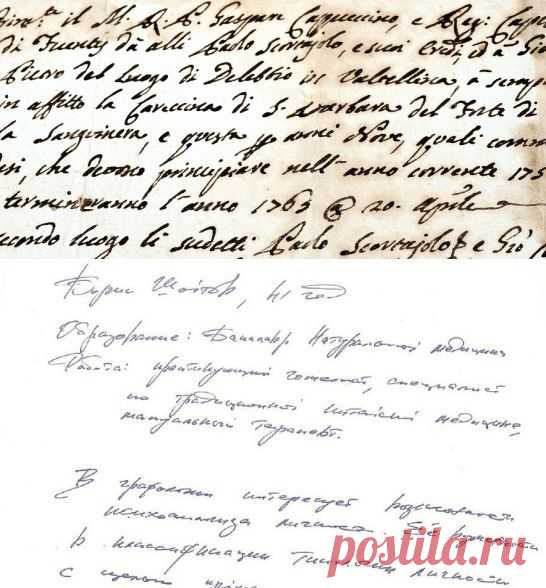 il M. R. P. Gaspare Capuccino, e
di Fuentes dà alli Paolo Scortajolo, e suoi
del luogo di Delebbio in Valtellina, à
in affitto la di S. Barbara del Forte di
la Sanguinera, e questa anni Nove, quali
che deono principiare nell'anno corrente 175
termineranno l'anno 1763 @ 20. Aprile
secondo luogo li sudetti Paolo Scortajolo e Giò
41 год
Образование: Бакалавр Натуральной медицины
Работа: практикующий гомеопат, специалист
по традиционной китайской медицине,
мануальный терапевт.
В графологии интересует возможность
психоанализа личности. Её
в классификации типологии личности
с целью
postila.ru